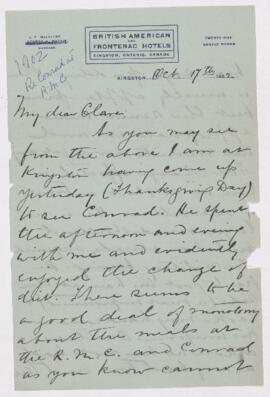 BRITISH AMERICAN
AND
FRONTENAC HOTELS
KINGSTON, ONTARIO, CANADA.
1902
R.M.C.
KINGSTON, Oct. 17th 1902
My dear Clare,
As you may see
from the above I am at
Kingston having come up
yesterday (Thanksgiving Day)
to see Conrad. He spent
the afternoon and evening
with me and evidently
enjoyed the change of
diet. There seems to be
a good deal of monotony
about the meals at
the R.M.C. and Conrad
as you know cannot